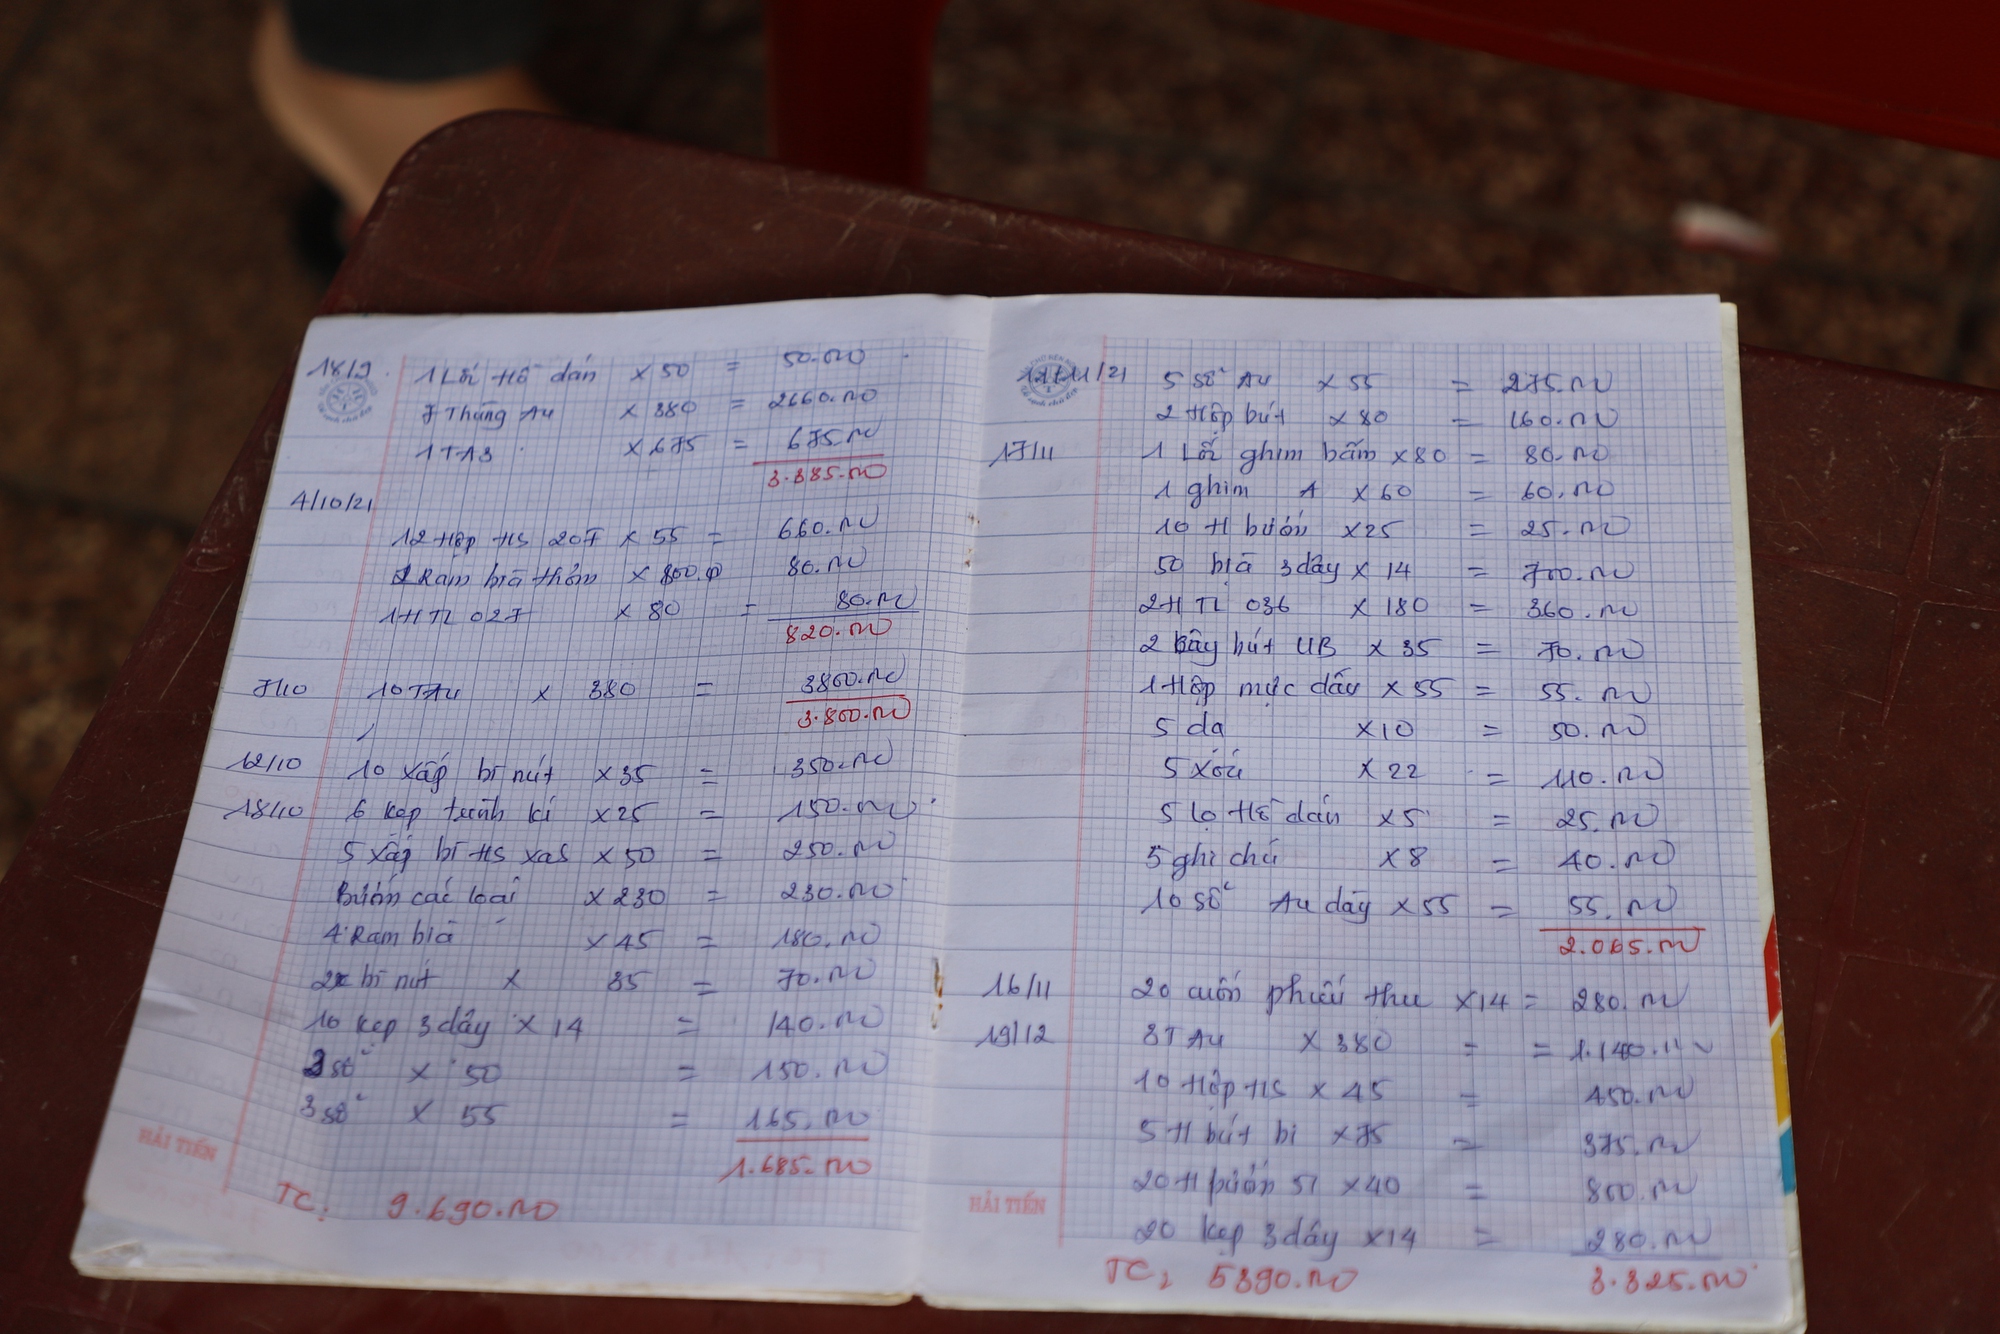 18/9 1 Lốc Hồ dán x 50 = 50.000
7 Thùng A4 x 380 = 2660.000
1 T A3 x 675 = 675.000
3.385.000
4/10/21
12 Hộp HS 207 x 55 = 660.000
2 Ram bìa thơm x 80.000 80.000
1 H TL 027 x 80 = 80.000
820.000
7/10 10 T A4 x 380 = 3800.000
3.800.000
12/10 10 xấp bì nút x 35 = 350.000
18/10 6 kẹp trình kí x 25 = 150.000
5 xấp bì HS x 50 = 250.000
Bướm các loại x 230 = 230.000
4 Ram bìa x 45 = 180.000
2x bì nút x 35 = 70.000
10 kẹp 3 dây x 14 = 140.000
3 sổ x 50 = 150.000
3 sổ x 55 = 165.000
1.685.000
HẢI TIẾN
TC: 9.690.000
12/11/21 5 sổ A4 x 55 = 275.000
2 Hộp bút x 80 = 160.000
17/11 1 Lốc ghim bấm x 80 = 80.000
1 ghim A x 60 = 60.000
10 H bướm x 25 = 25.000
50 bìa 3 dây x 14 = 700.000
2 H TL 036 x 180 = 360.000
2 cây bút UB x 35 = 70.000
1 Hộp mực dấu x 55 = 55.000
5 dạ x 10 = 50.000
5 xóa x 22 = 110.000
5 lọ Hồ dán x 5 = 25.000
5 ghi chú x 8 = 40.000
10 sổ A4 dày x 55 = 55.000
2.065.000
16/11 20 cuốn phiếu thu x 14 = 280.000
19/12 3 T A4 x 380 = = 1.140.000
10 Hộp HS x 45 = 450.000
5 H bút bi x 75 = 375.000
20 H bướm 51 x 40 = 800.000
20 kẹp 3 dây x 14 = 280.000
HẢI TIẾN
TC: 5390.000 3.325.000